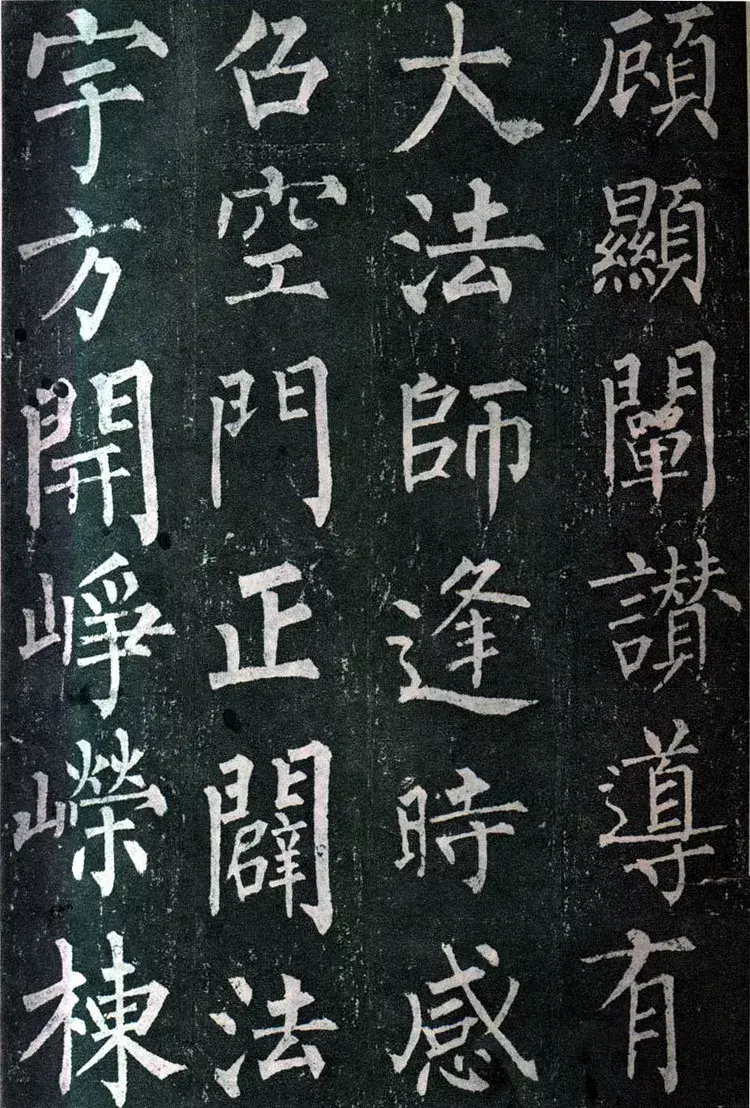 顧顯闡讃導有
大法師逢時感
召空門正闢法
宇方開峥嶸棟